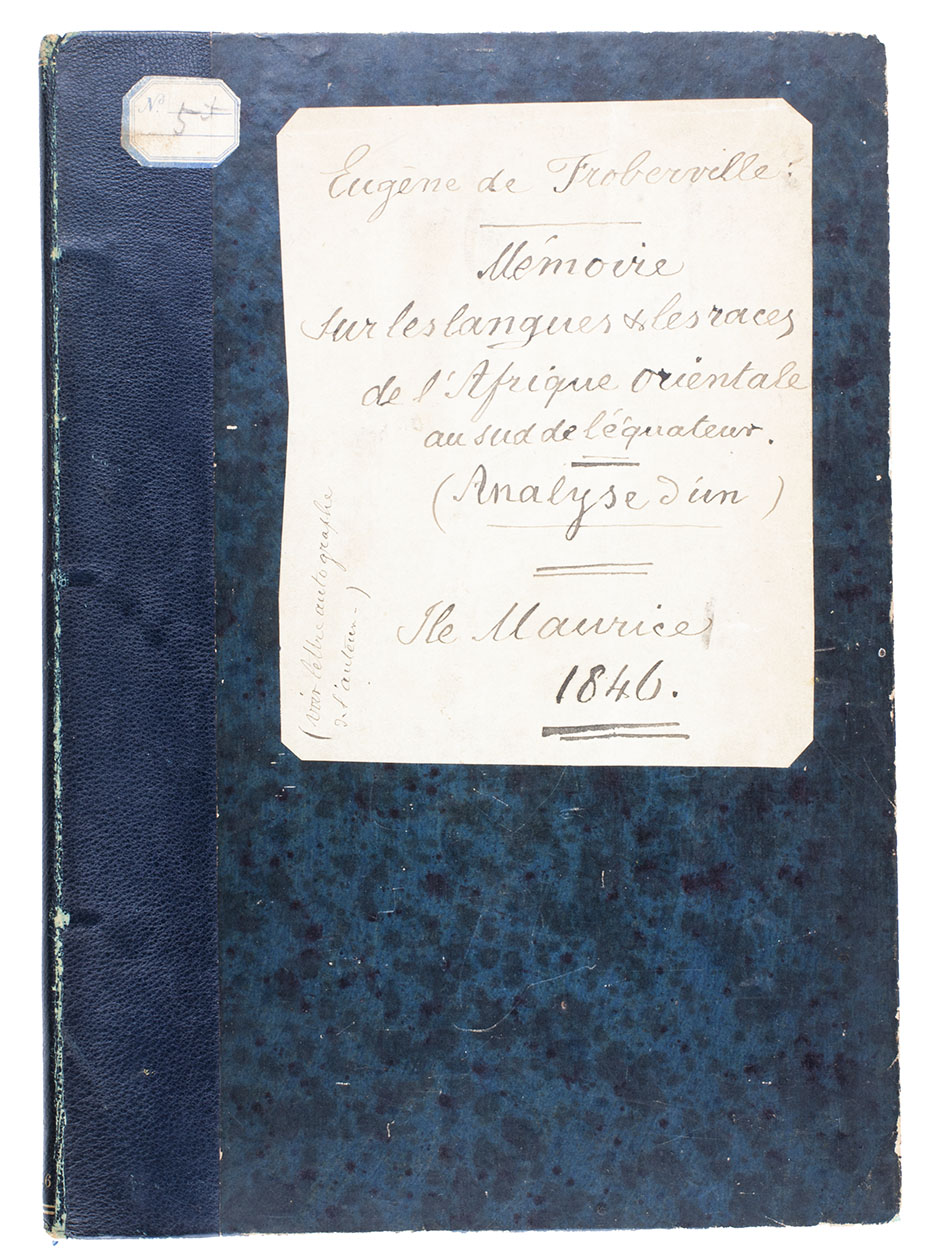 No
Eugène de Froberville:
Mémoire
sur les langues & les races
de l'Afrique orientale
au sud de l'équateur.
(Analyse d'un)
Ile Maurice
1846.
(voir lettre autographe
de l'auteur-)
6